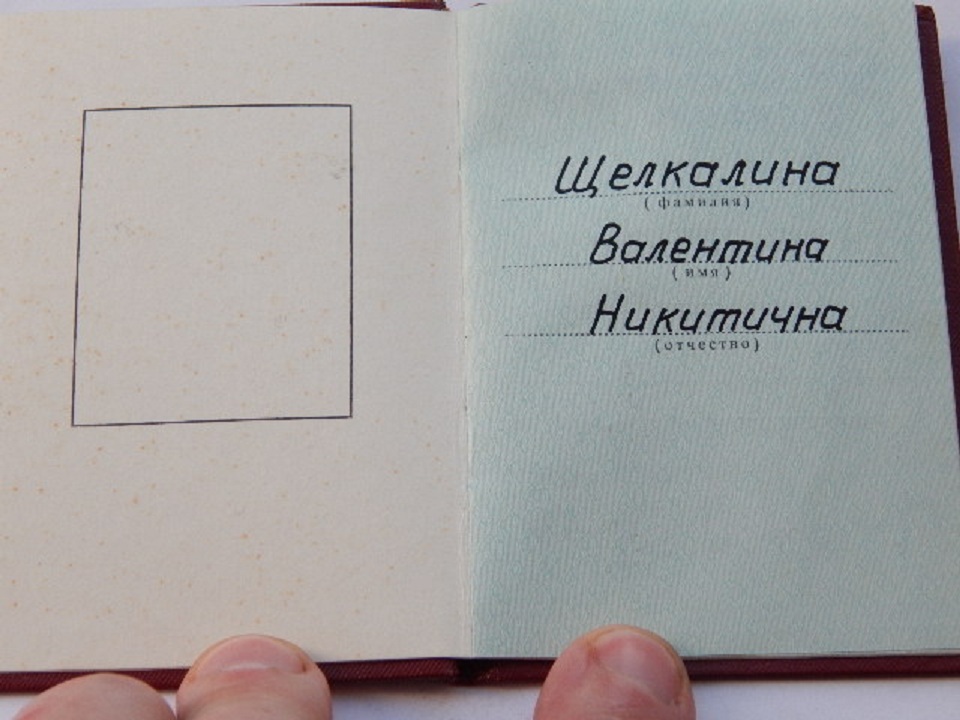 Щелкалина
(фамилия)
Валентина
(имя)
Никитична
(отчество)